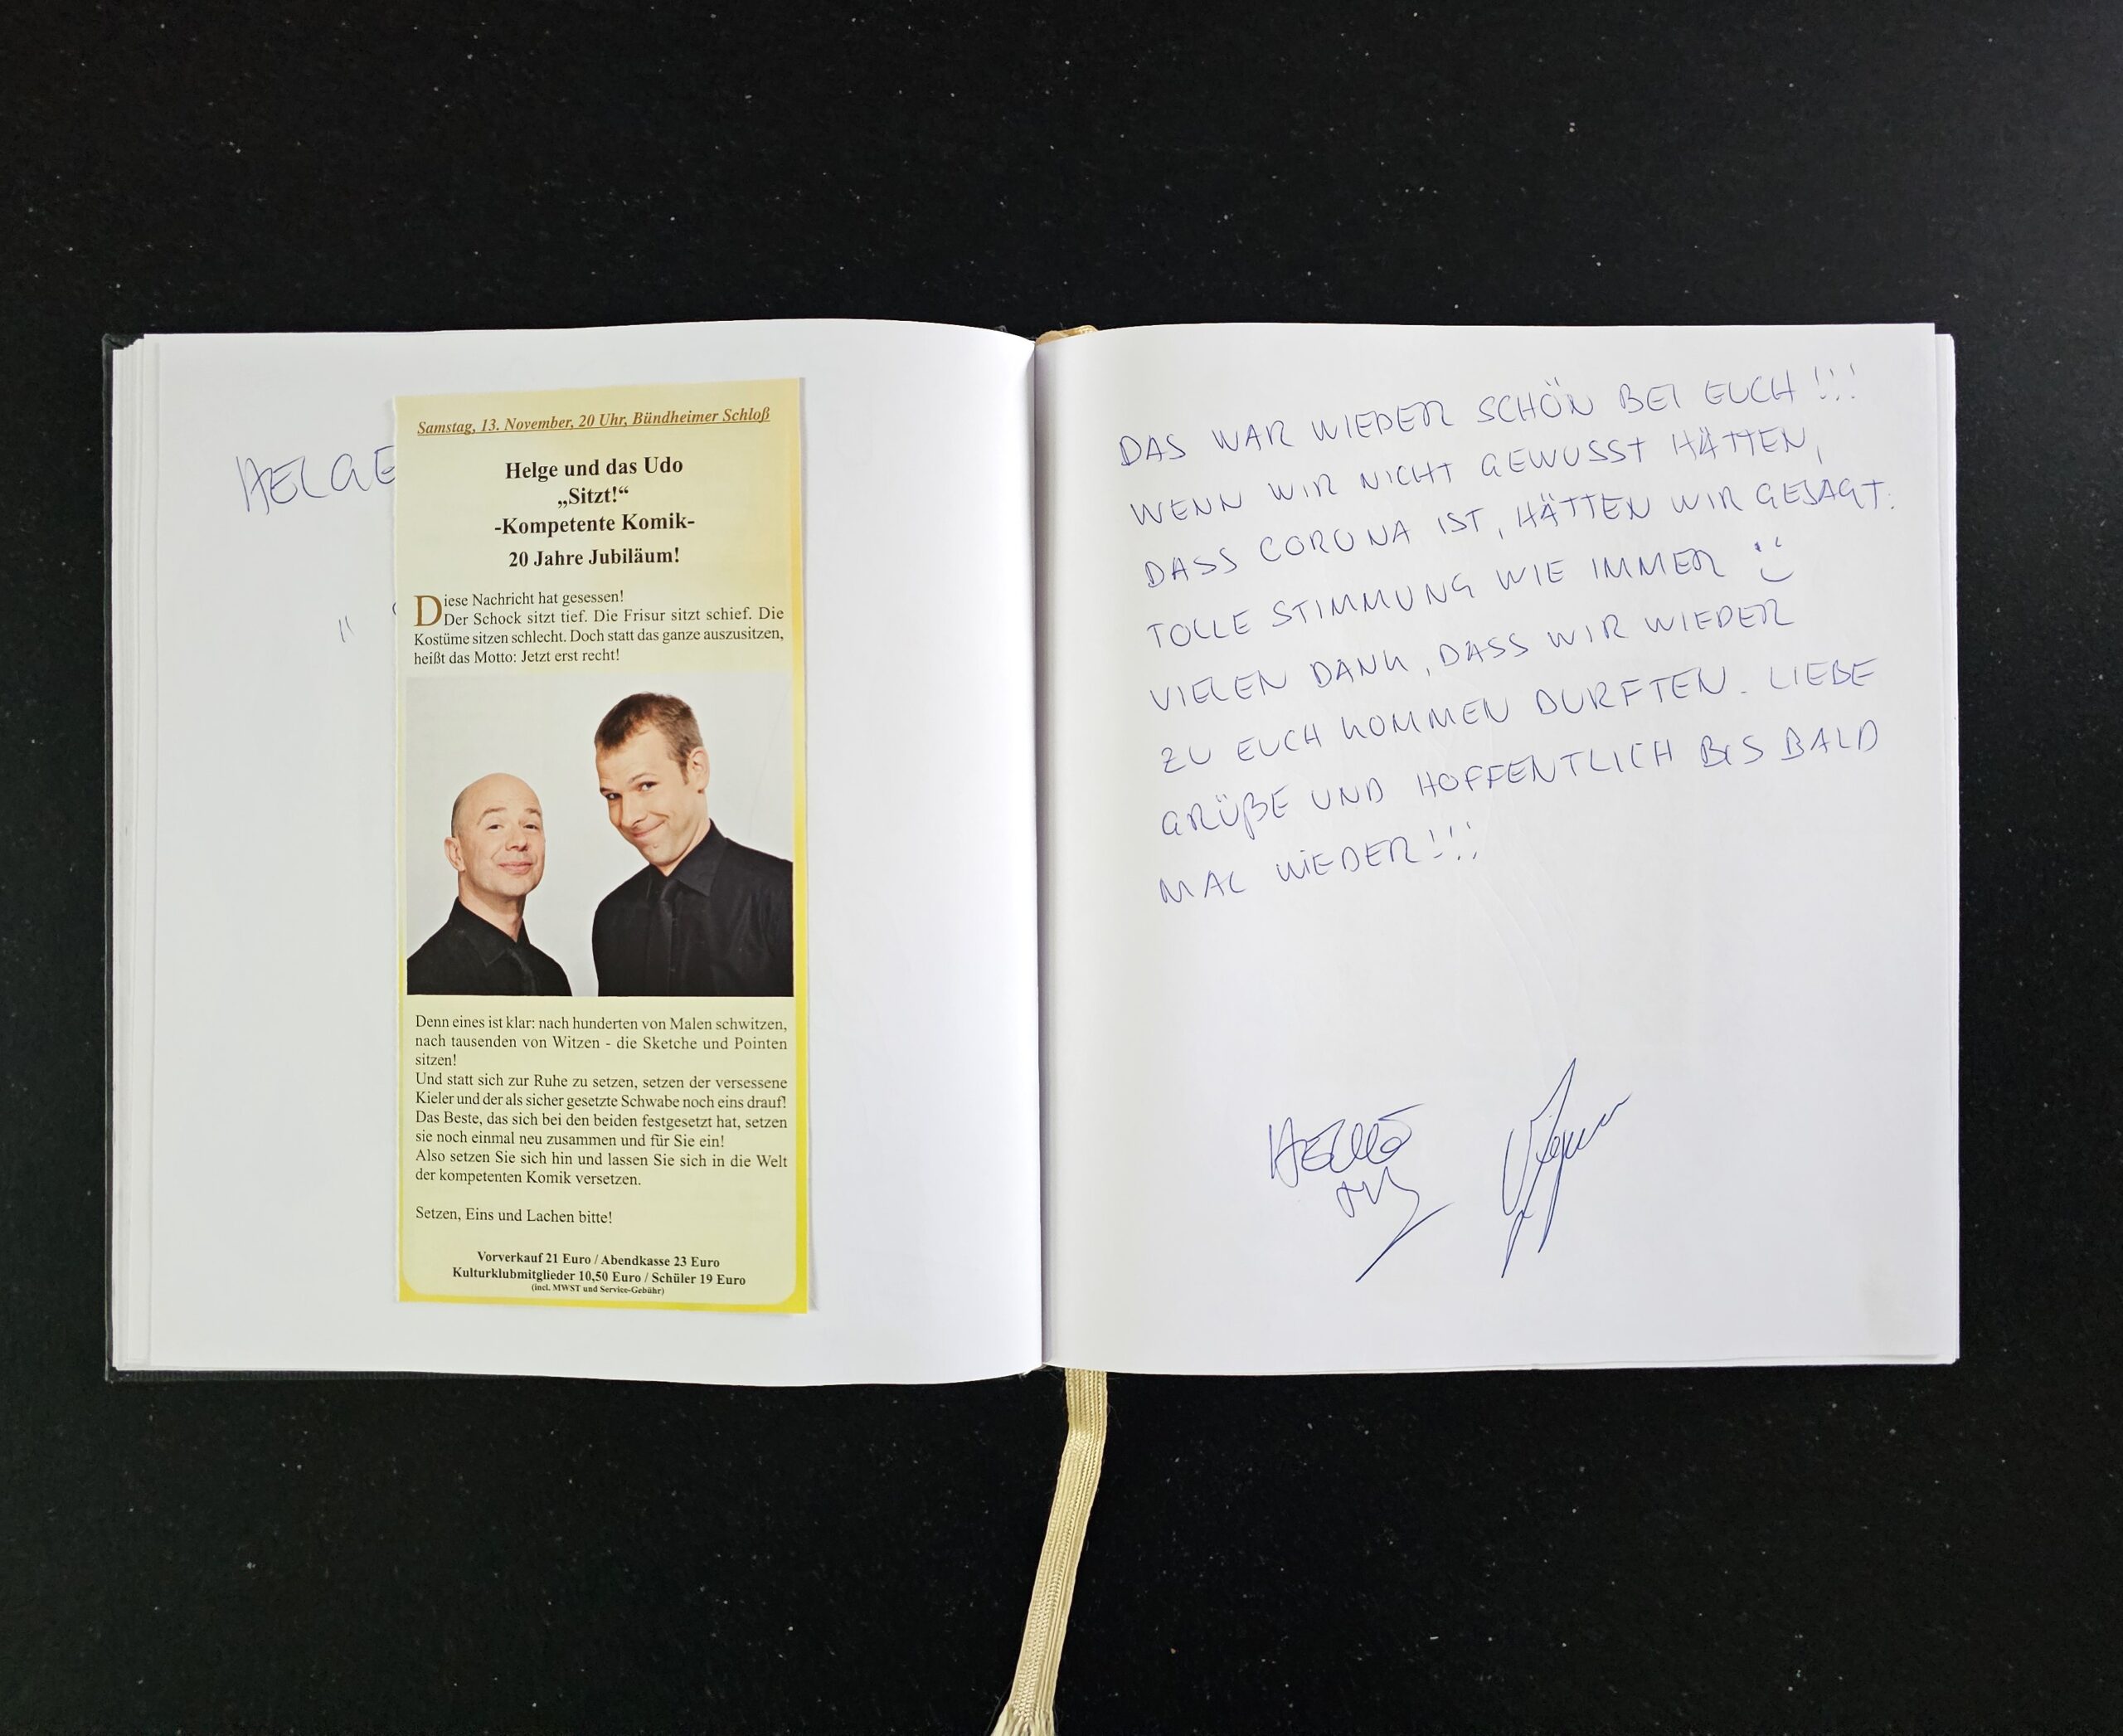 HELGE
"
Samstag, 13. November, 20 Uhr, Bündheimer Schloß
Helge und das Udo
„Sitzt!“
-Kompetente Komik-
20 Jahre Jubiläum!
Diese Nachricht hat gesessen!
Der Schock sitzt tief. Die Frisur sitzt schief. Die
Kostüme sitzen schlecht. Doch statt das ganze auszusitzen,
heißt das Motto: Jetzt erst recht!
Denn eines ist klar: nach hunderten von Malen schwitzen,
nach tausenden von Witzen - die Sketche und Pointen
sitzen!
Und statt sich zur Ruhe zu setzen, setzen der versessene
Kieler und der als sicher gesetzte Schwabe noch eins drauf!
Das Beste, das sich bei den beiden festgesetzt hat, setzen
sie noch einmal neu zusammen und für Sie ein!
Also setzen Sie sich hin und lassen Sie sich in die Welt
der kompetenten Komik versetzen.
Setzen, Eins und Lachen bitte!
Vorverkauf 21 Euro / Abendkasse 23 Euro
Kulturklubmitglieder 10,50 Euro / Schüler 19 Euro
(incl. MWST und Service-Gebühr)
DAS WAR WIEDER SCHÖN BEI EUCH!!!
WENN WIR NICHT GEWUSST HÄTTEN,
DASS CORONA IST, HÄTTEN WIR GESAGT:
TOLLE STIMMUNG WIE IMMER :)
VIELEN DANK, DASS WIR WIEDER
ZU EUCH KOMMEN DURFTEN. LIEBE
GRÜßE UND HOFFENTLICH BIS BALD
MAL WIEDER!!!